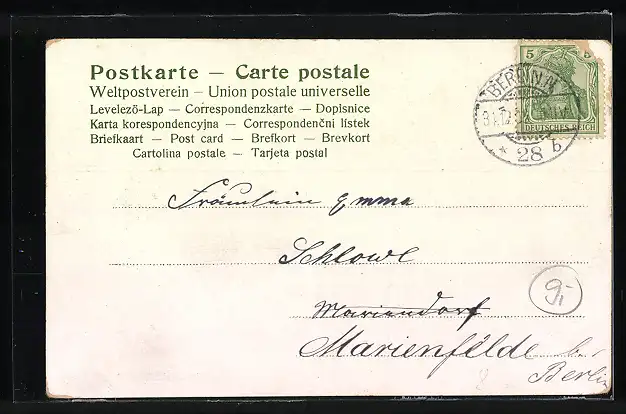 Postkarte — Carte postale
Weltpostverein — Union postale universelle
Levelező-Lap — Correspondenzkarte — Dopisnice
Karta korespondencyjna — Correspondenčni listek
Briefkaart — Post card — Brefkort — Brevkort
Cartolina postale — Tarjeta postal
5
DEUTSCHES REICH
BERLIN N
* 28 b
Fräulein Emma
Schlowl
Mariendorf
Marienfelde bei
Berlin
9,-